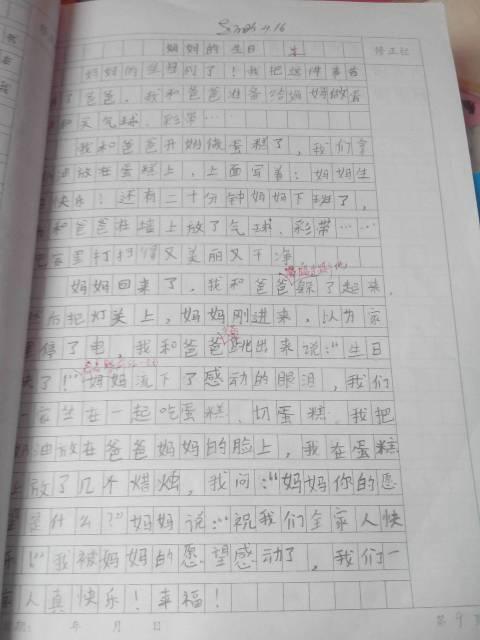 11.16
妈妈的生日
修正栏
妈妈的生日到了！我把这件事告
了爸爸，我和爸爸准备给妈妈做蛋
和买气球、彩带…
我和爸爸开始做蛋糕了，我们拿
油放在蛋糕上，上面写着：妈妈生
快乐！还有二十分钟妈妈下班了，
和爸爸在墙上放了气球、彩带……
家里打扫得又美丽又干净
妈妈回来了，我和爸爸躲了起来，
后把灯关上，妈妈刚进来，以为家
停了电，我和爸爸跳出来说：“生日
快了！”妈妈流下了感动的眼泪，我们
一家坐在一起吃蛋糕、切蛋糕，我把
奶油放在爸爸妈妈的脸上，我在蛋糕
上放了几个蜡烛，我问：“妈妈你的愿
望是什么？”妈妈说：“祝我们全家人快
乐！”我被妈妈的愿望感动了，我们一
家人真快乐！幸福！
年 月 日
第 9